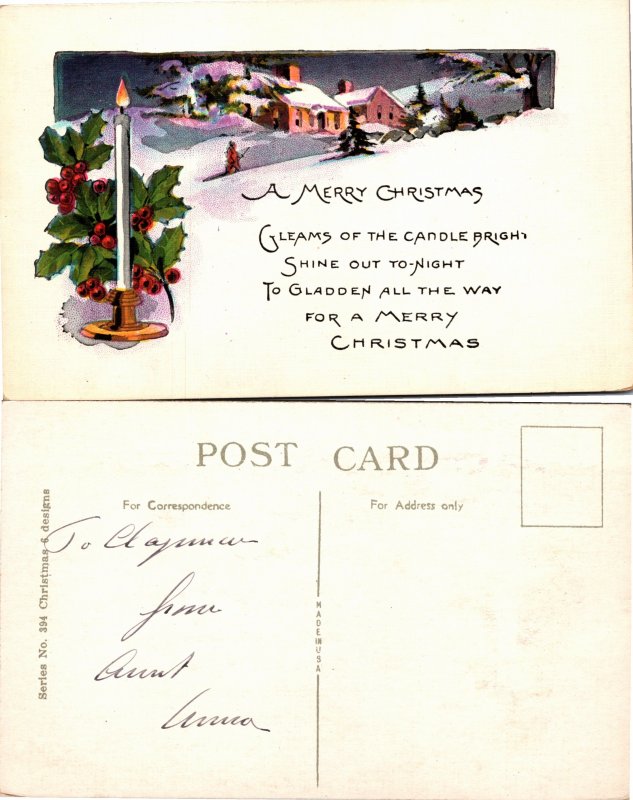 A MERRY CHRISTMAS
GLEAMS OF THE CANDLE BRIGHT
SHINE OUT TO-NIGHT
TO GLADDEN ALL THE WAY
FOR A MERRY
CHRISTMAS
POST CARD
For Correspondence
For Address only
Series No. 394 Christmas-6 designs
MADE IN USA
To
from
Aunt
Anna